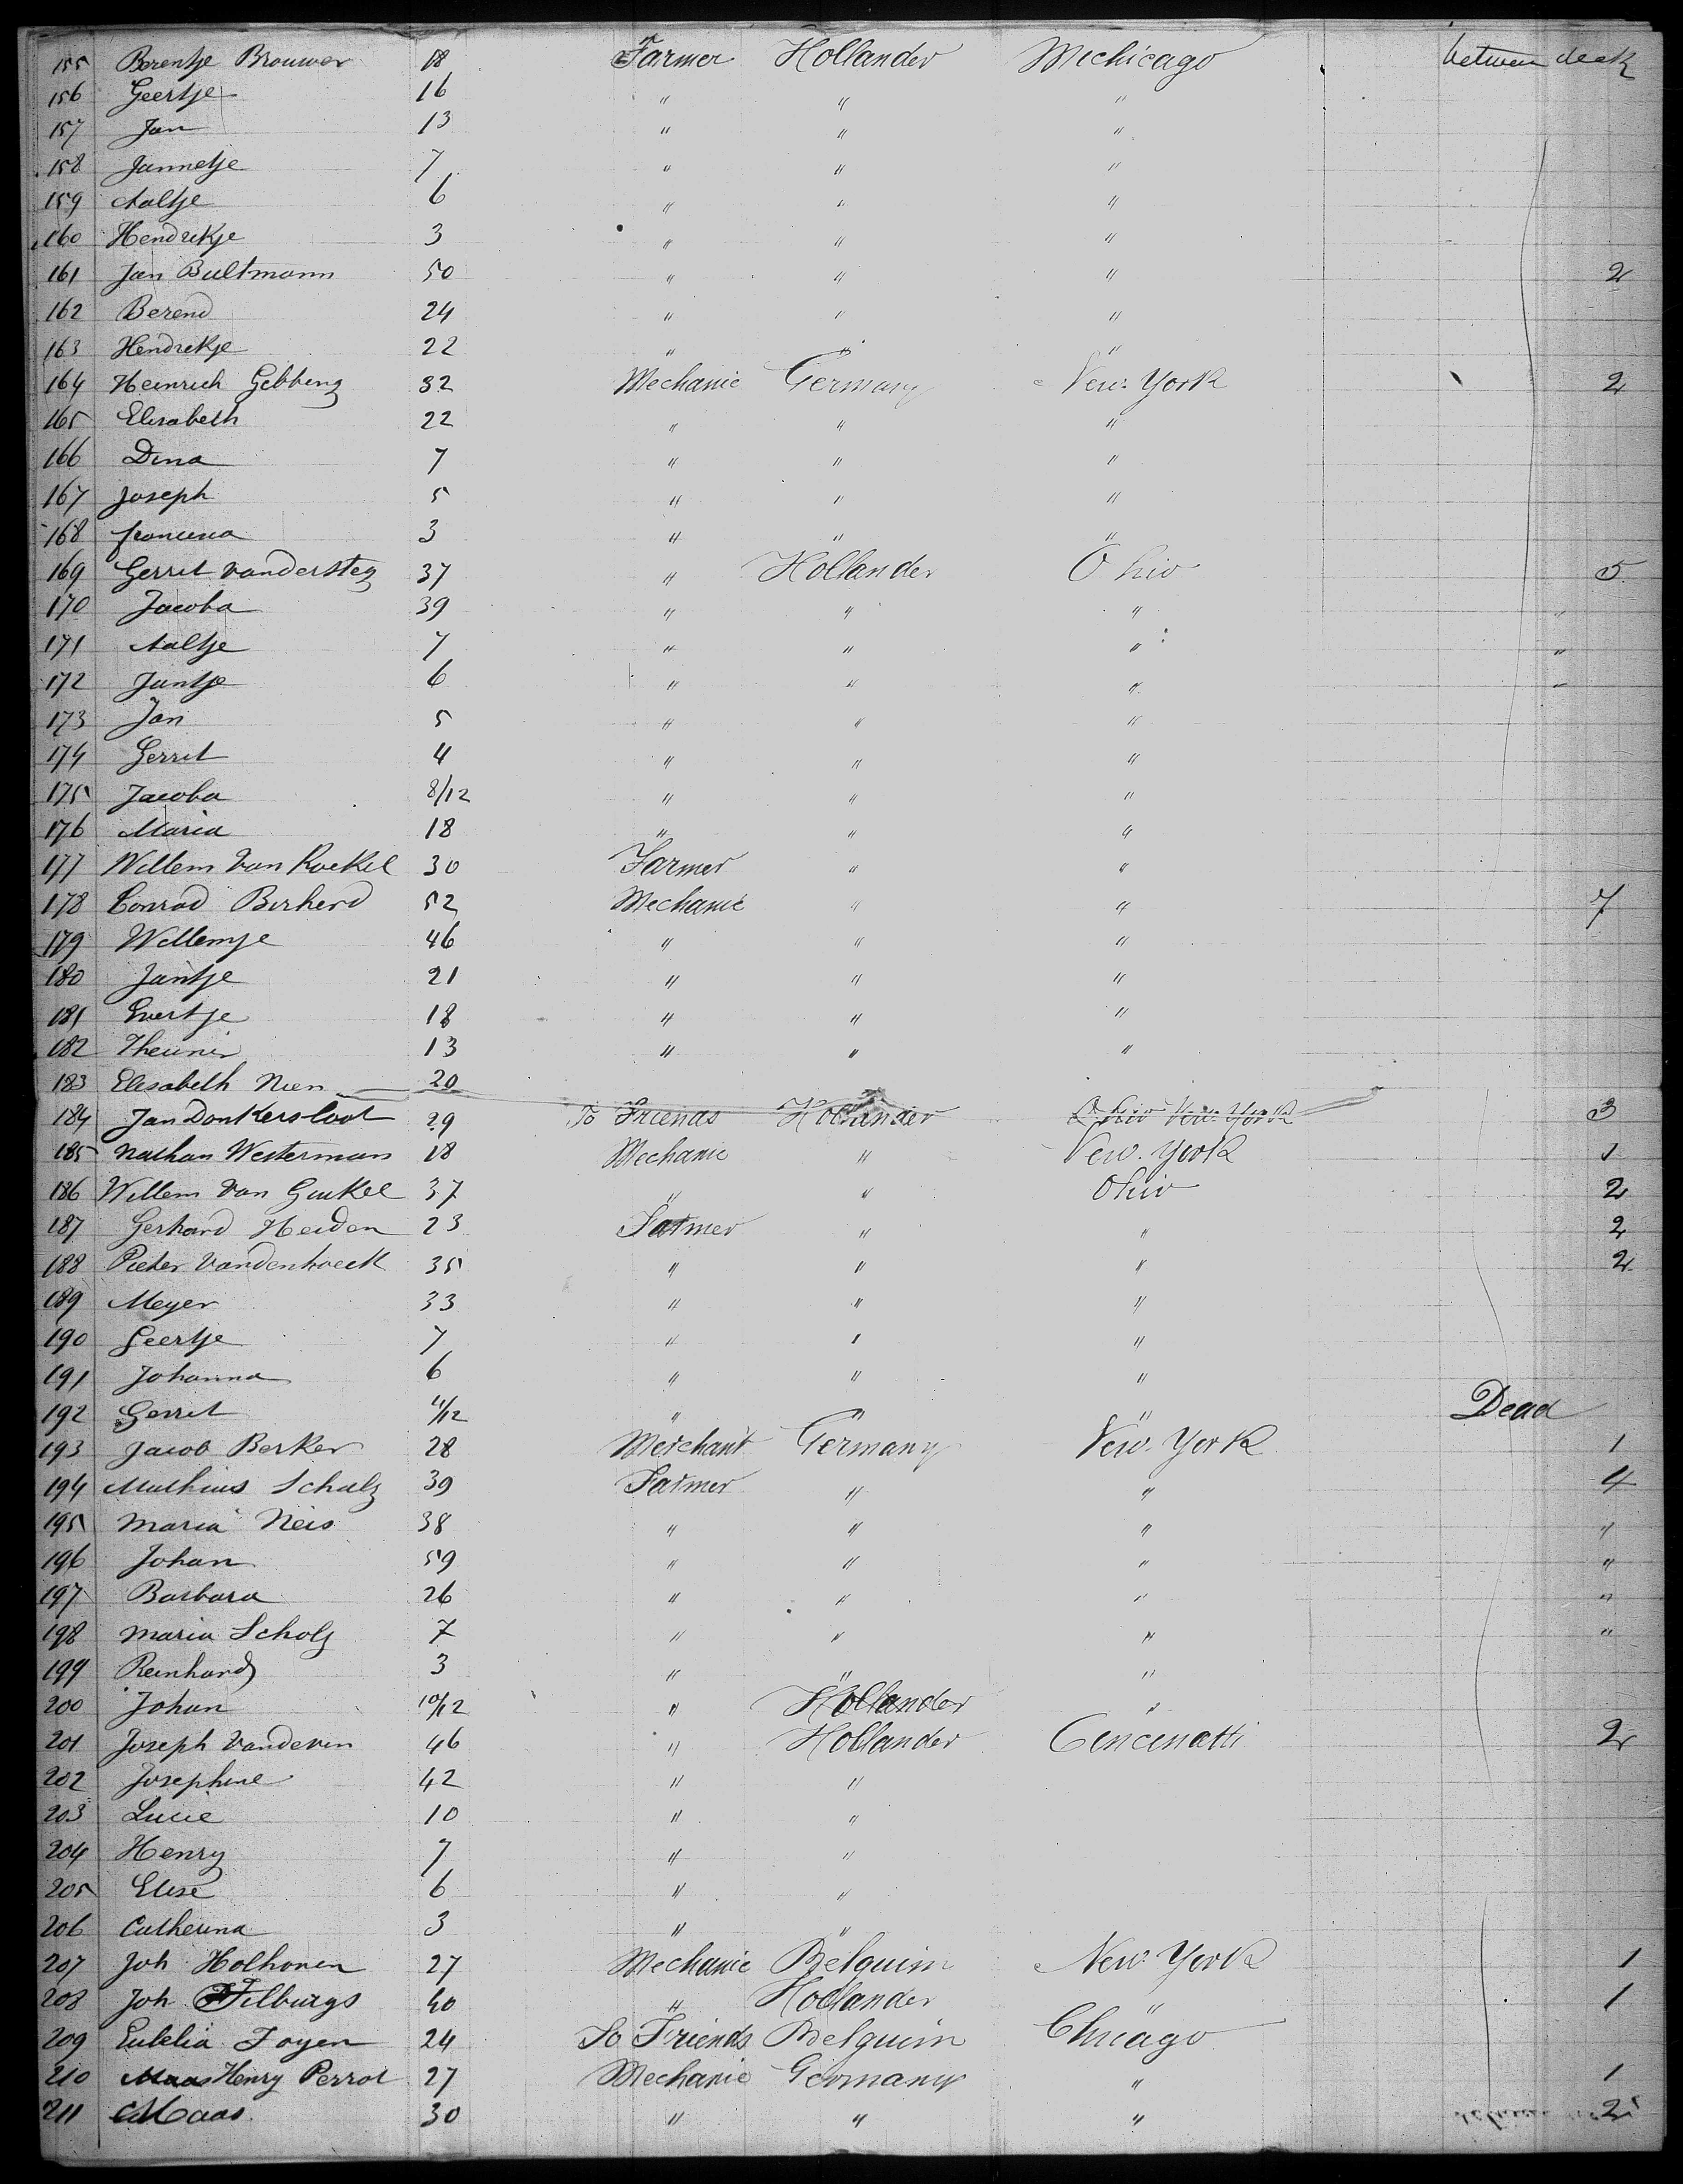 155 Berentje Brouwer 18 Farmer Hollander Mechicago between deck
156 Geertje 16 " " "
157 Jan 13 " " "
158 Jannetje 7 " " "
159 Aaltje 6 " " "
160 Hendrikje 3 " " "
161 Jan Bultmann 50 " " " 2
162 Berend 24 " " "
163 Hendrikje 22 " " "
164 Heinrich Gebbing 32 Mechanic Germany New York 2
165 Elisabeth 22 " " "
166 Dina 7 " " "
167 Joseph 5 " " "
168 francina 3 " " "
169 Gerrit Vandersteg 37 " Hollander Ohio 5
170 Jacoba 39 " " " "
171 Aaltje 7 " " " "
172 Jantje 6 " " " "
173 Jan 5 " " "
174 Gerrit 4 " " "
175 Jacoba 8/12 " " "
176 Maria 18 " " "
177 Willem Van Roekel 30 Farmer " "
178 Conrad Birherd 52 Mechanic " " 7
179 Willemje 46 " " "
180 Jantje 21 " " "
181 Evertje 18 " " "
182 Theunis 13 " " "
183 Elisabeth Nien 20
184 Jan Donkersloot 29 To Friends Hollander Ohio New York 3
185 Nathan Westerman 18 Mechanic " New York 1
186 Willem Van Ginkel 37 " " Ohio 2
187 Gerhard Heiden 23 Farmer " " 2
188 Pieter Vandenhoeck 35 " " " 2
189 Meyer 33 " " "
190 Geertje 7 " " "
191 Johanna 6 " " "
192 Gerrit 4/12 " " " Dead
193 Jacob Berker 28 Merchant Germany New York 1
194 Mathias Schulz 39 Farmer " " 4
195 Maria Neis 38 " " " "
196 Johan 59 " " " "
197 Barbara 26 " " " "
198 Maria Scholz 7 " " " "
199 Reinhard 3 " " "
200 Johan 10/12 " Hollander "
201 Joseph Vanderen 46 " Hollander Cencenatti 2
202 Josephine 42 " "
203 Lucie 10 " "
204 Henry 7 " "
205 Elise 6 " "
206 Catherina 3 " "
207 Joh Holhoven 27 Mechanic Belguim New York 1
208 Joh Tilburgs 40 " Hollander " 1
209 Eulelia Foyen 24 To Friends Belguim Chicago
210 Maas Henry Perrot 27 Mechanic Germany " 1
211 Maas 30 " " " 2